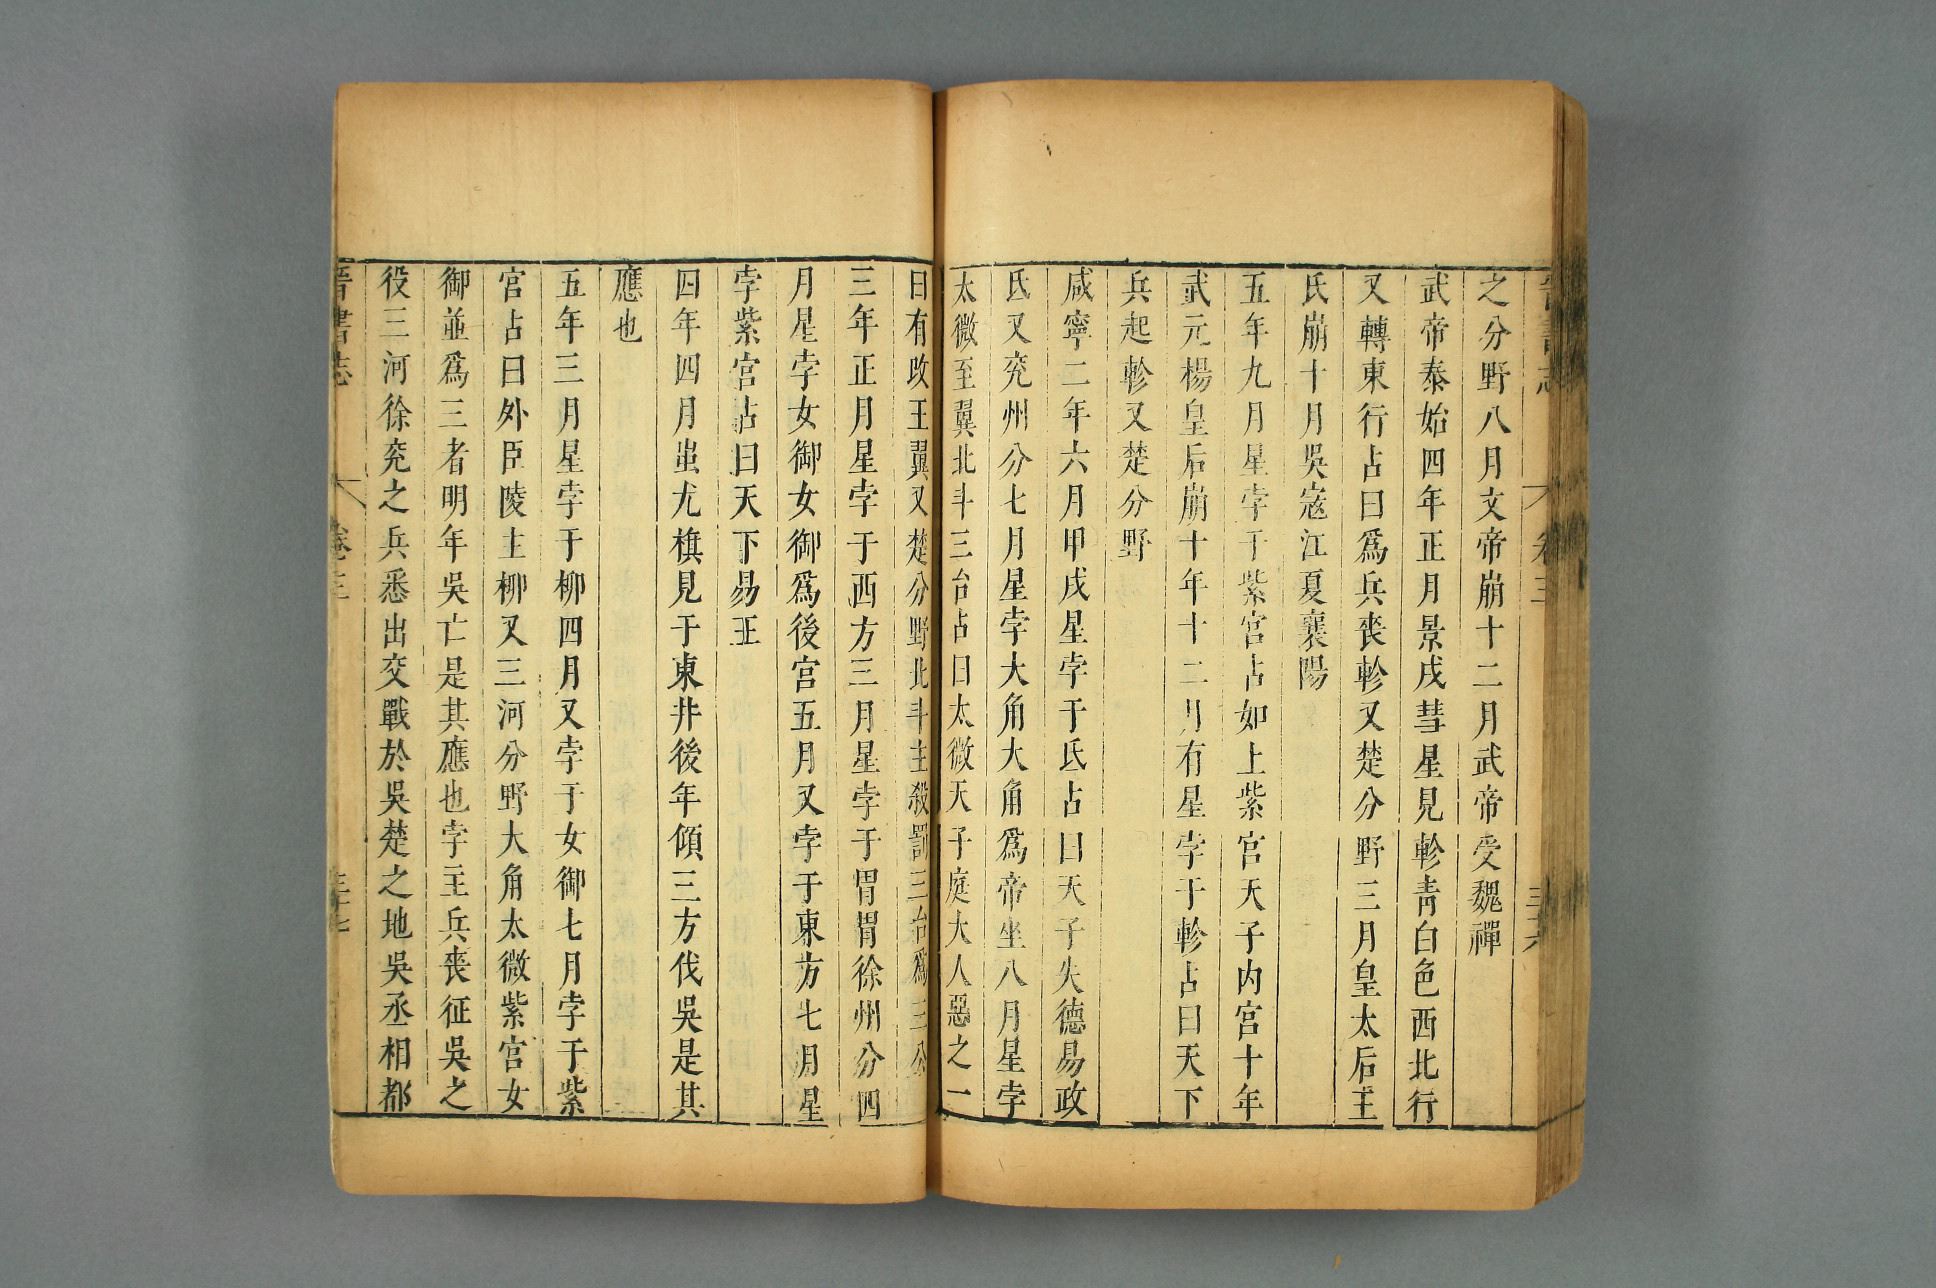 晉書志 卷三 三十六
之分野八月文帝崩十二月武帝受魏禪
武帝泰始四年正月景戌彗星見軫青白色西北行
又轉東行占曰爲兵喪軫又楚分野三月皇太后王
氏崩十月吳寇江夏襄陽
五年九月星孛于紫宮占如上紫宮天子內宮十年
武元楊皇后崩十年十二月有星孛于軫占曰天下
兵起軫又楚分野
咸寧二年六月甲戌星孛于氐占曰天子失德易政
氐又兖州分七月星孛大角大角爲帝坐八月星孛
太微至翼北斗三台占曰太微天子庭大人惡之一
曰有攺王翼又楚分野北斗主殺罰三台爲三公
三年正月星孛于西方三月星孛于胃胃徐州分四
月星孛女御女御爲後宮五月又孛于東方七月星
孛紫宮占曰天下易王
四年四月蚩尤旗見于東井後年傾三方伐吳是其
應也
五年三月星孛于柳四月又孛于女御七月孛于紫
宮占曰外臣陵主柳又三河分野大角太微紫宮女
御並爲三者明年吳亡是其應也孛主兵喪征吳之
役三河徐兖之兵悉出交戰於吳楚之地吳丞相都
晉書志 卷三 三十七